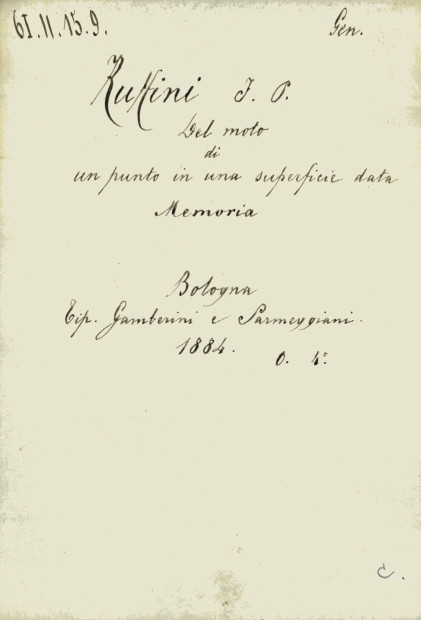 61.11.15.9. Gen.
Ruffini F. P.
Del moto
di
un punto in una superficie data
Memoria
Bologna
Tip. Gamberini e Parmeggiani.
1884. O. 4°.
C.